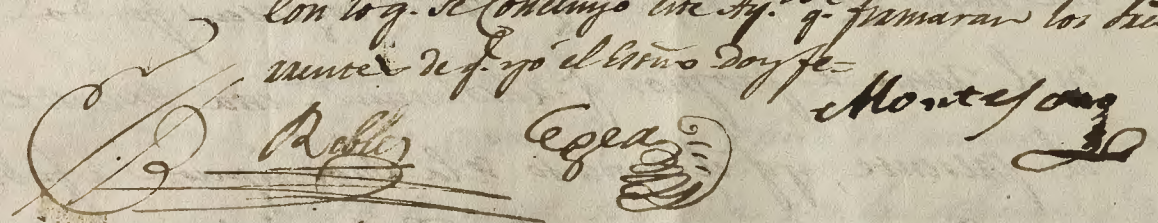 Con lo q. se Concluyó este Ay.to q. framaran los Sres
mente de q. yó el Essno. Doy fe=
Robles Egea Montesoro